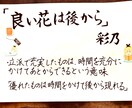 「良い花は後から」
彩乃
・立派で充実したものは、時間を充分に
かけてあとからできるという意味
「優れたものは時間をかけて後から現れる」